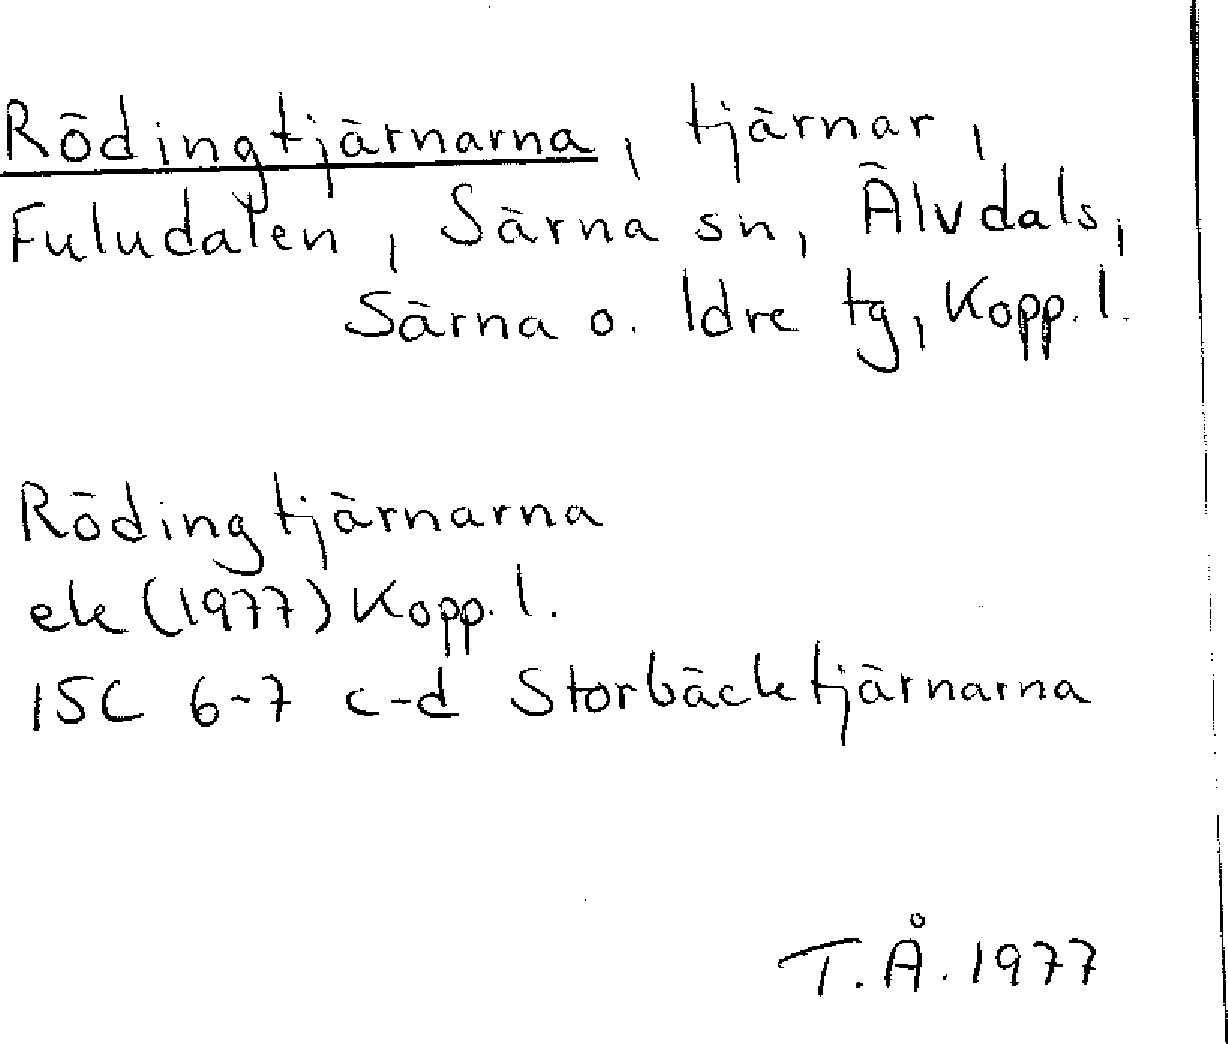 Rödingtjärnarna, tjärnar,
Fuludalen, Särna sn, Älvdals,
Särna o. Idre tg, Kopp. l.
Rödingtjärnarna
ek (1977) Kopp. l.
15C 6-7 c-d Storbäcktjärnarna
T.Å. 1977